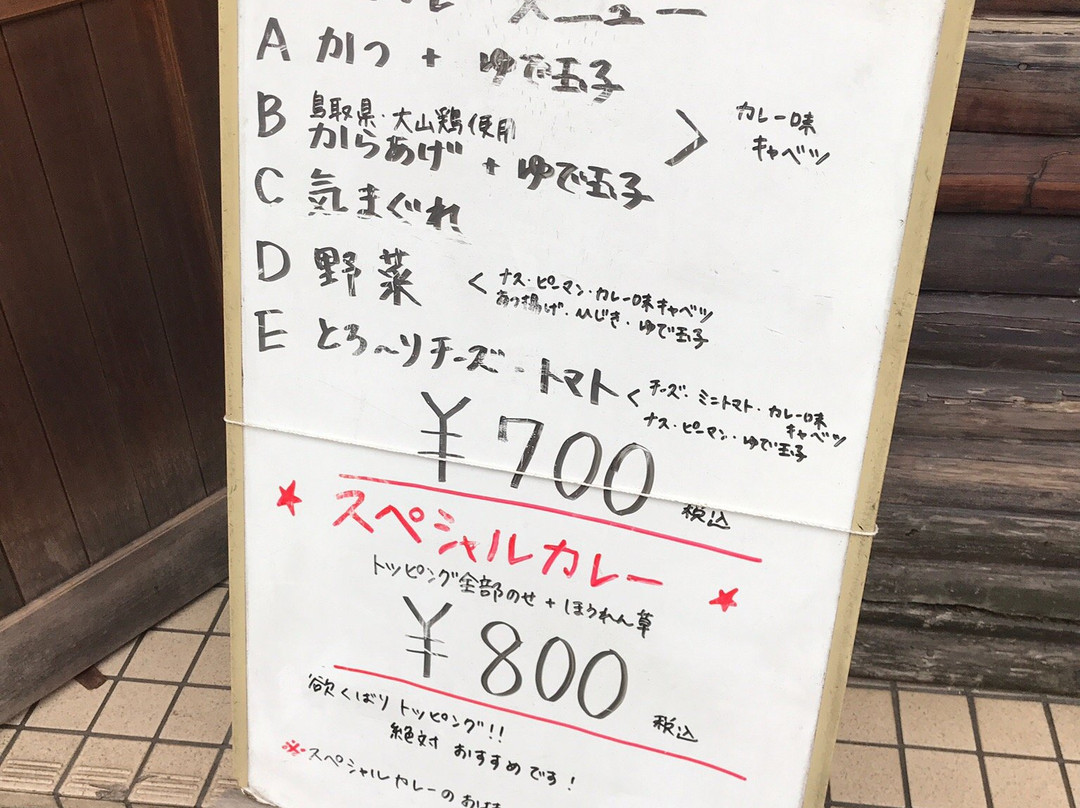 メニュー
A かつ + ゆで玉子
B 鳥取県・大山鶏使用
からあげ + ゆで玉子
> カレー味
キャベツ
C 気まぐれ
D 野菜 < ナス・ピーマン・カレー味キャベツ
あつ揚げ・ひじき・ゆで玉子
E とろ〜りチーズ・トマト < チーズ・ミニトマト・カレー味
キャベツ
ナス・ピーマン・ゆで玉子
¥700 税込
★スペシャルカレー★
トッピング全部のせ + ほうれん草
¥800 税込
欲くばりトッピング!!
絶対おすすめです!
※スペシャルカレーの